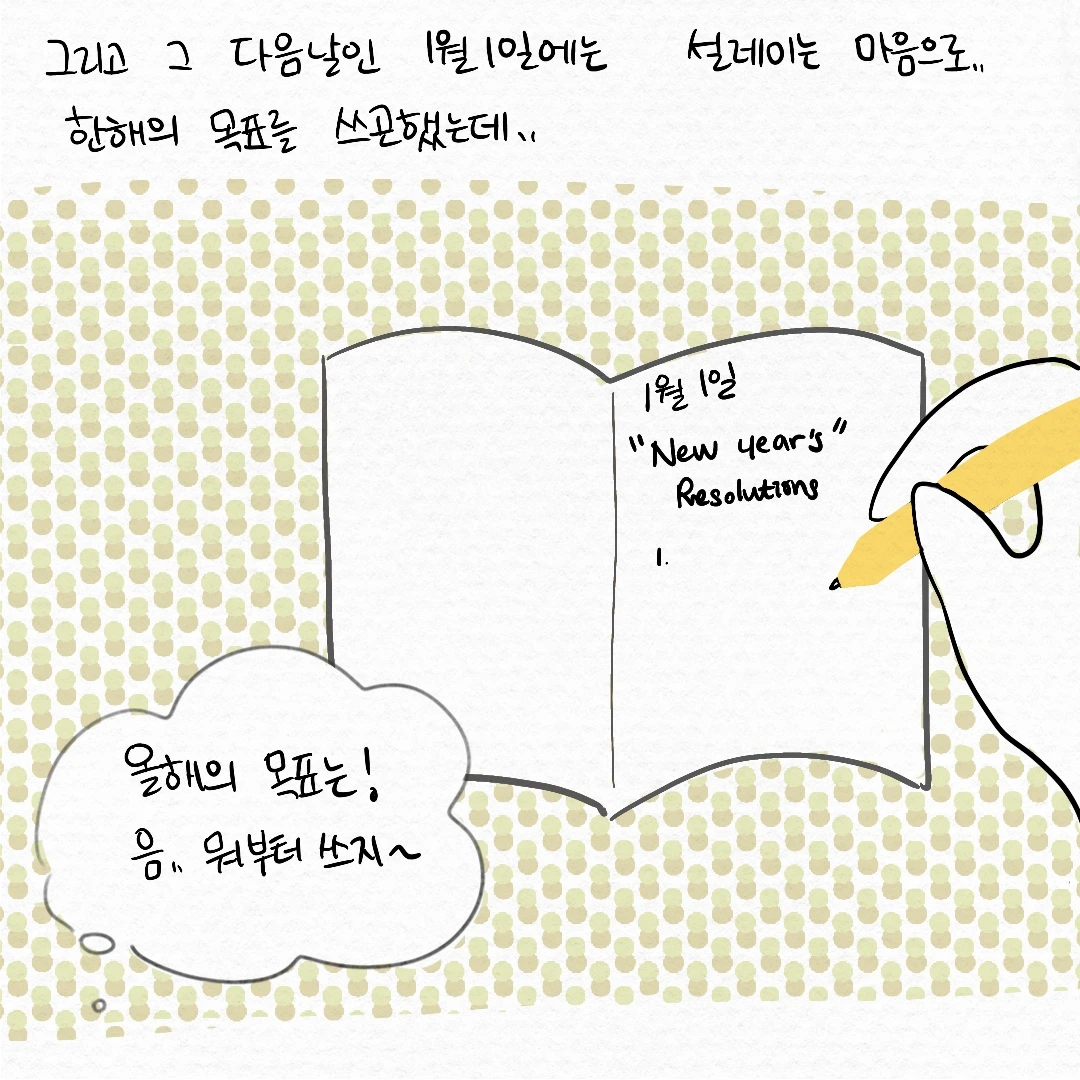 그리고 그 다음날인 1월 1일에는 설레이는 마음으로..
한해의 목표를 쓰곤했는데..
1월 1일
"New year's"
Resolutions
1.
올해의 목표는!
음.. 뭐부터 쓰지~